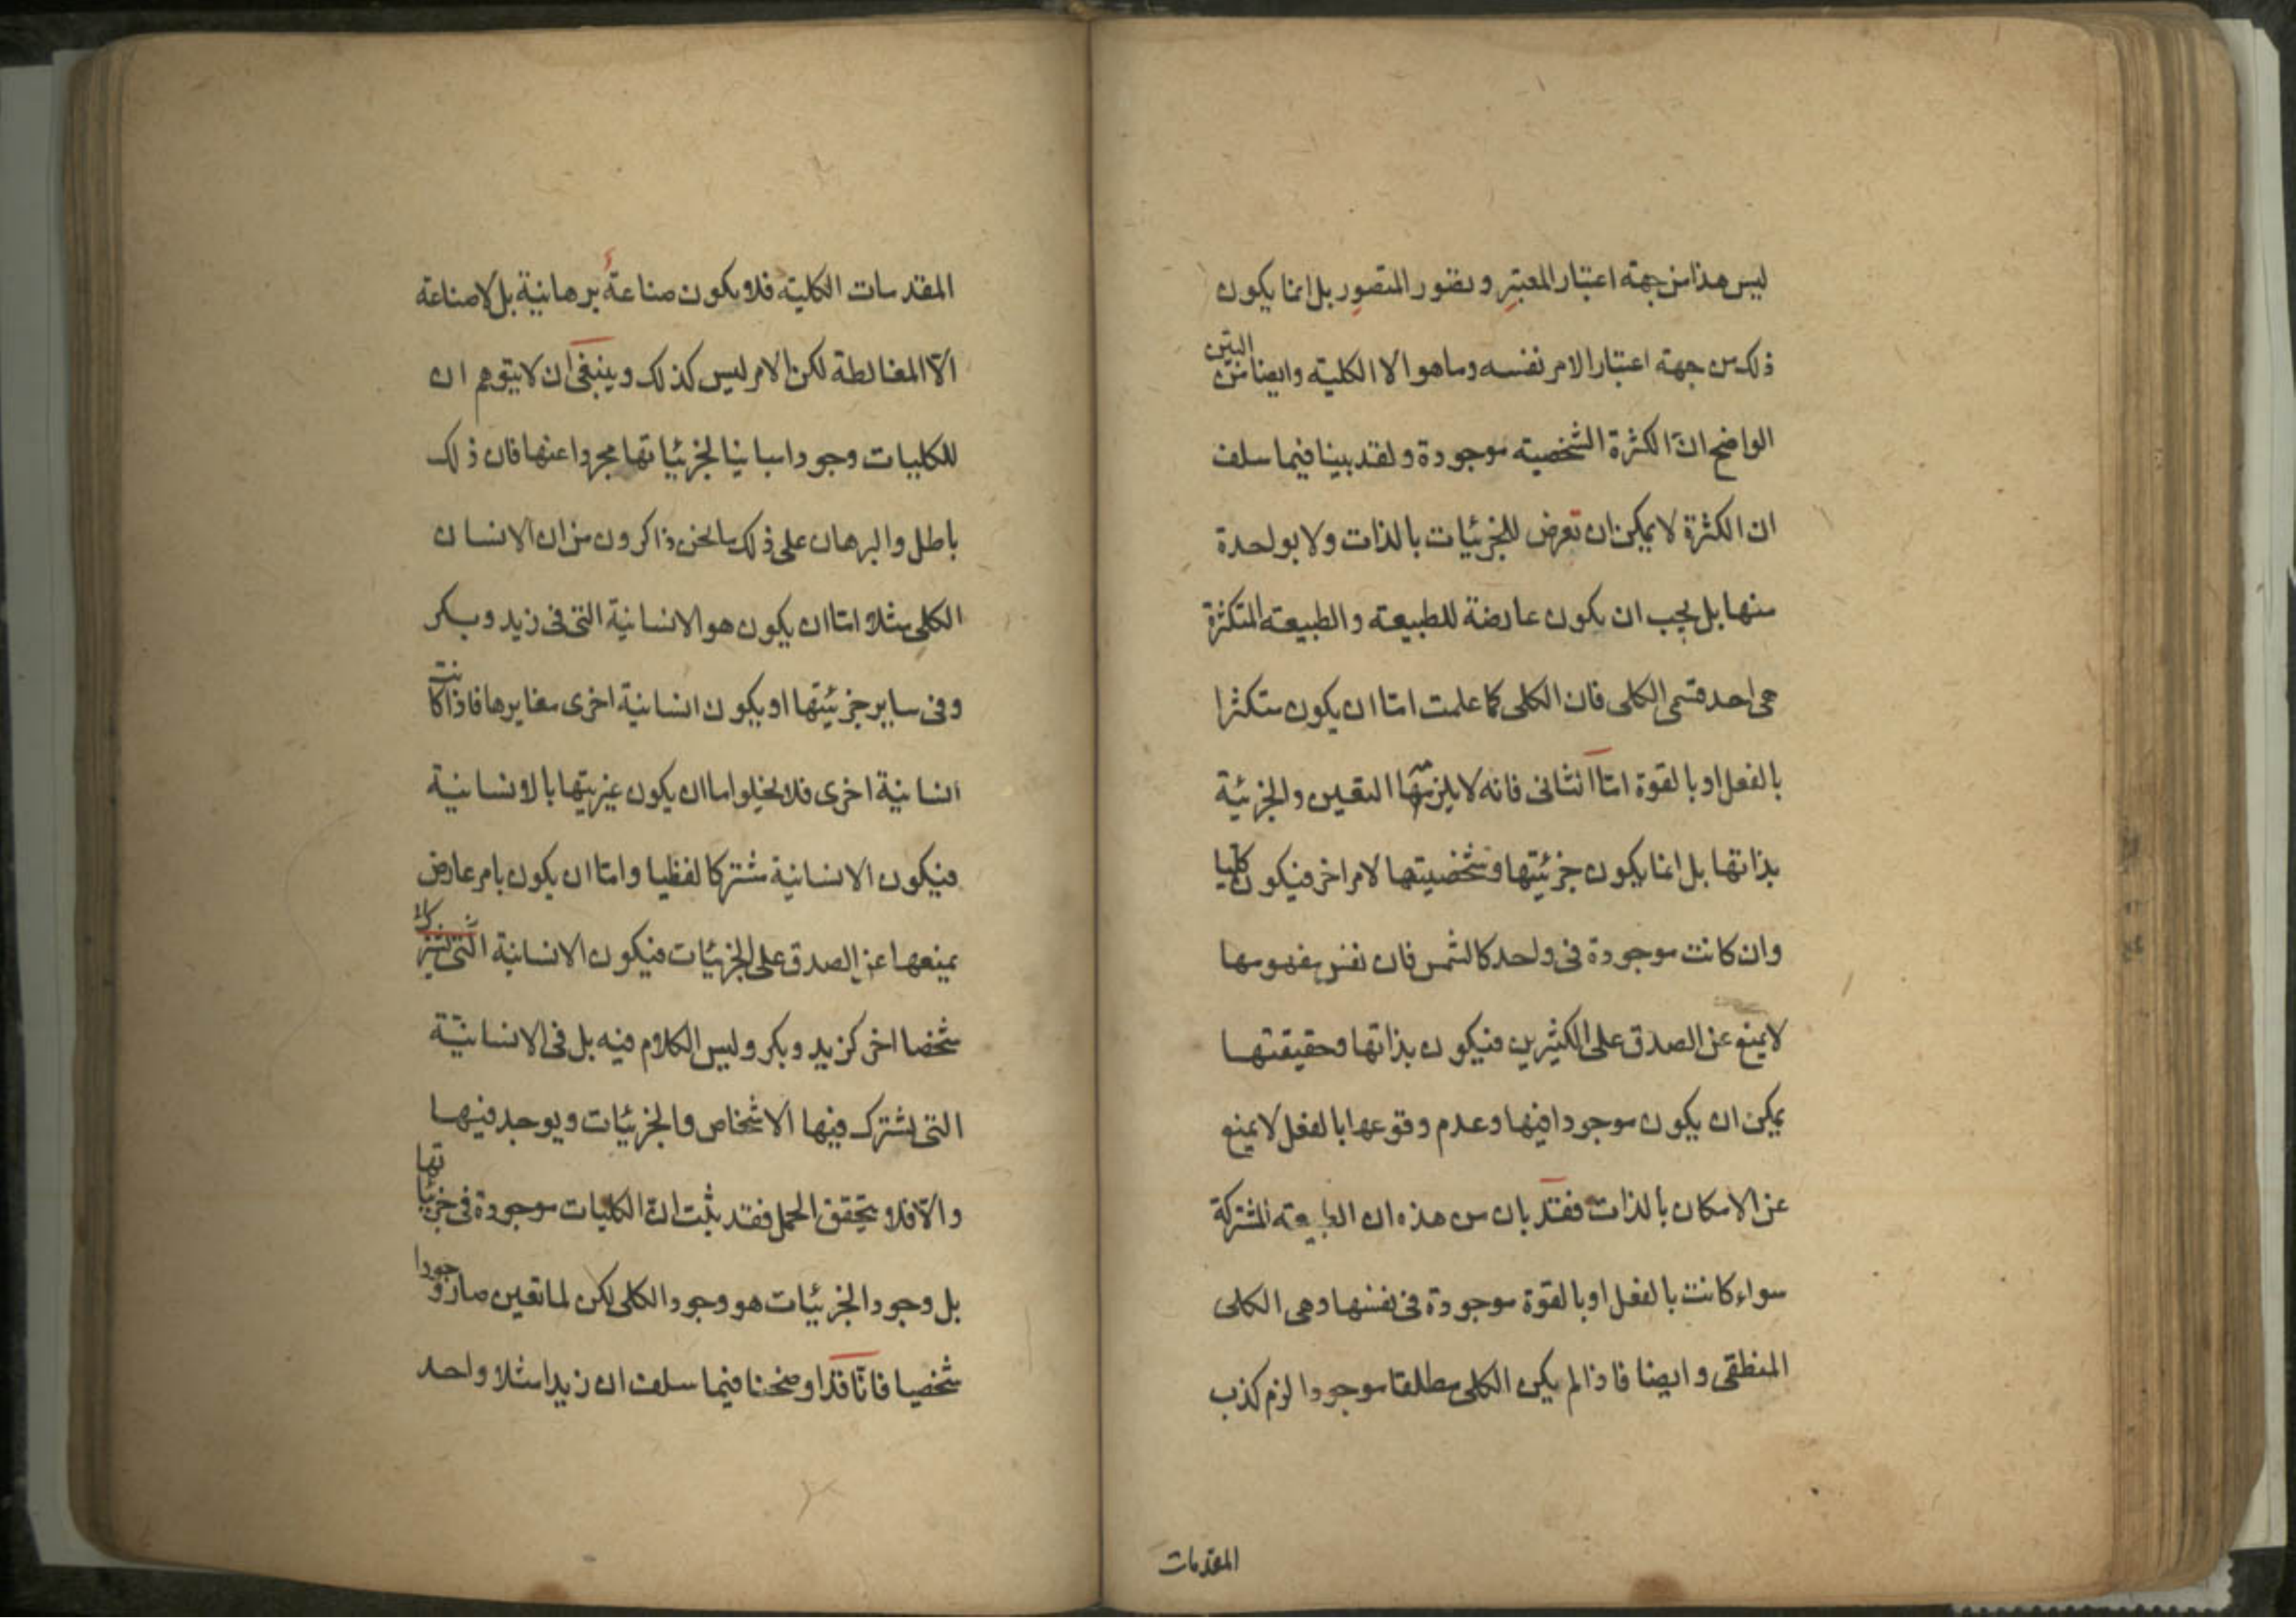 ليس هذا من جهة اعتبار المعتبِر وتصور المتصوِر بل انما يكون
ذلك من جهة اعتبار الامر نفسه وما هو الا الكلية وايضا من البيّن
الواضح انّ الكثرة الشخصية موجودة ولقد بينا فيما سلف
ان الكثرة لا يمكن ان تعرض للجزئيات بالذات ولا بواحدة
منها بل يجب ان يكون عارضة للطبيعة والطبيعة المتكثرة
هى احد قسمى الكلى فان الكلى كما علمت امّا ان يكون متكثرا
بالفعل او بالقوة امّا الثانى فانه لا يلزمها التعين والجزئية
بذاتها بل انما يكون جزئيتها وشخصيتها لامر اخر فيكون كليا
وان كانت موجودة فى واحد كالشمس فان نفس مفهومها
لا يمنع عن الصدق على الكثيرين فيكون بذاتها وحقيقتها
يمكن ان يكون موجودا فيها وعدم وقوعها بالفعل لا يمنع
عن الامكان بالذات فقد بان من هذه ان الطبيعة المشتركة
سواء كانت بالفعل او بالقوة موجودة فى نفسها وهى الكلى
المنطقى وايضا فاذا لم يكن الكلى مطلقا موجودا لزم كذب
المقدمات
المقدمات الكلية فلا يكون صناعةٌ برهانية بل لا صناعة
الّا المغالطة لكن الامر ليس كذلك وينبغى ان لا يتوهم ان
للكليات وجودا مباينا لجزئياتها مجردا عنها فان ذلك
باطل والبرهان على ذلك ما نحن ذاكرون من ان الانسان
الكلى مثلا امّا ان يكون هو الانسانية التى فى زيد وبكر
وفى ساير جزئيتها او يكون انسانية اخرى مغايرها فاذا كانت
انسانية اخرى فلا يخلوا اما ان يكون غيريتها بالانسانية
فيكون الانسانية مشتركا لفظيا وامّا ان يكون بامر عارض
يمنعها عن الصدق على الجزئيات فيكون الانسانية التى
شخصا اخر كزيد وبكر وليس الكلام فيه بل فى الانسانيّة
التى يشترك فيها الاشخاص والجزئيات ويوجد فيها
والّا فلا يتحقق الحمل فقد ثبت انّ الكليات موجودة فى جزئياتها
بل وجود الجزئيات هو وجود الكلى لكن لما تعين صار وجودا
شخصيا فانّا قد اوضحنا فيما سلف ان زيدا مثلا واحد